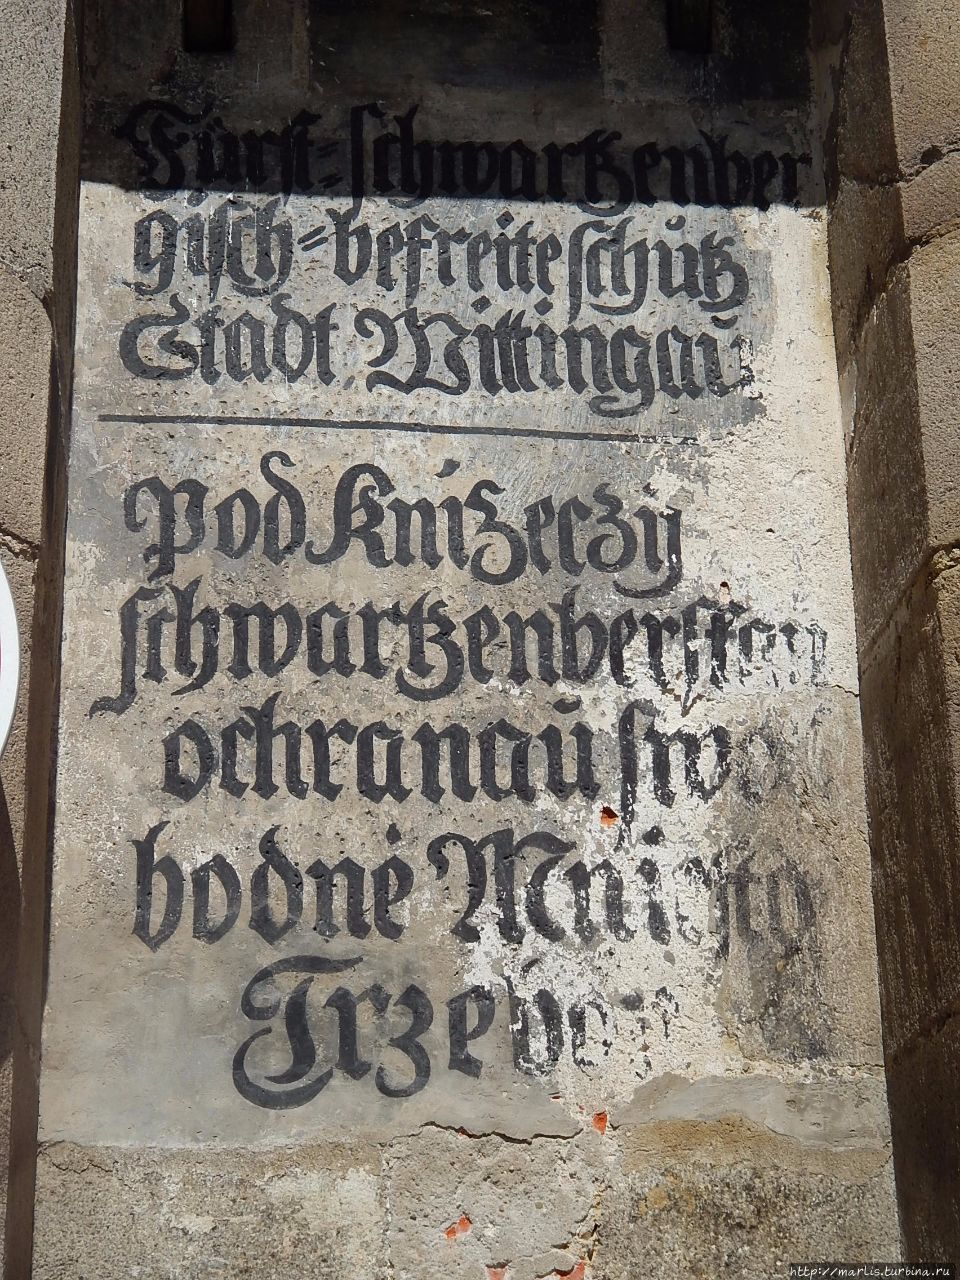 Fürst=schwartzenber
gisch=befreite schütz
Stadt Wittingau
Pod Knižeczy
schwartzenberskau
ochranaů swo
bodné Miesto
Trzebo
http://marlis.turbina.ru